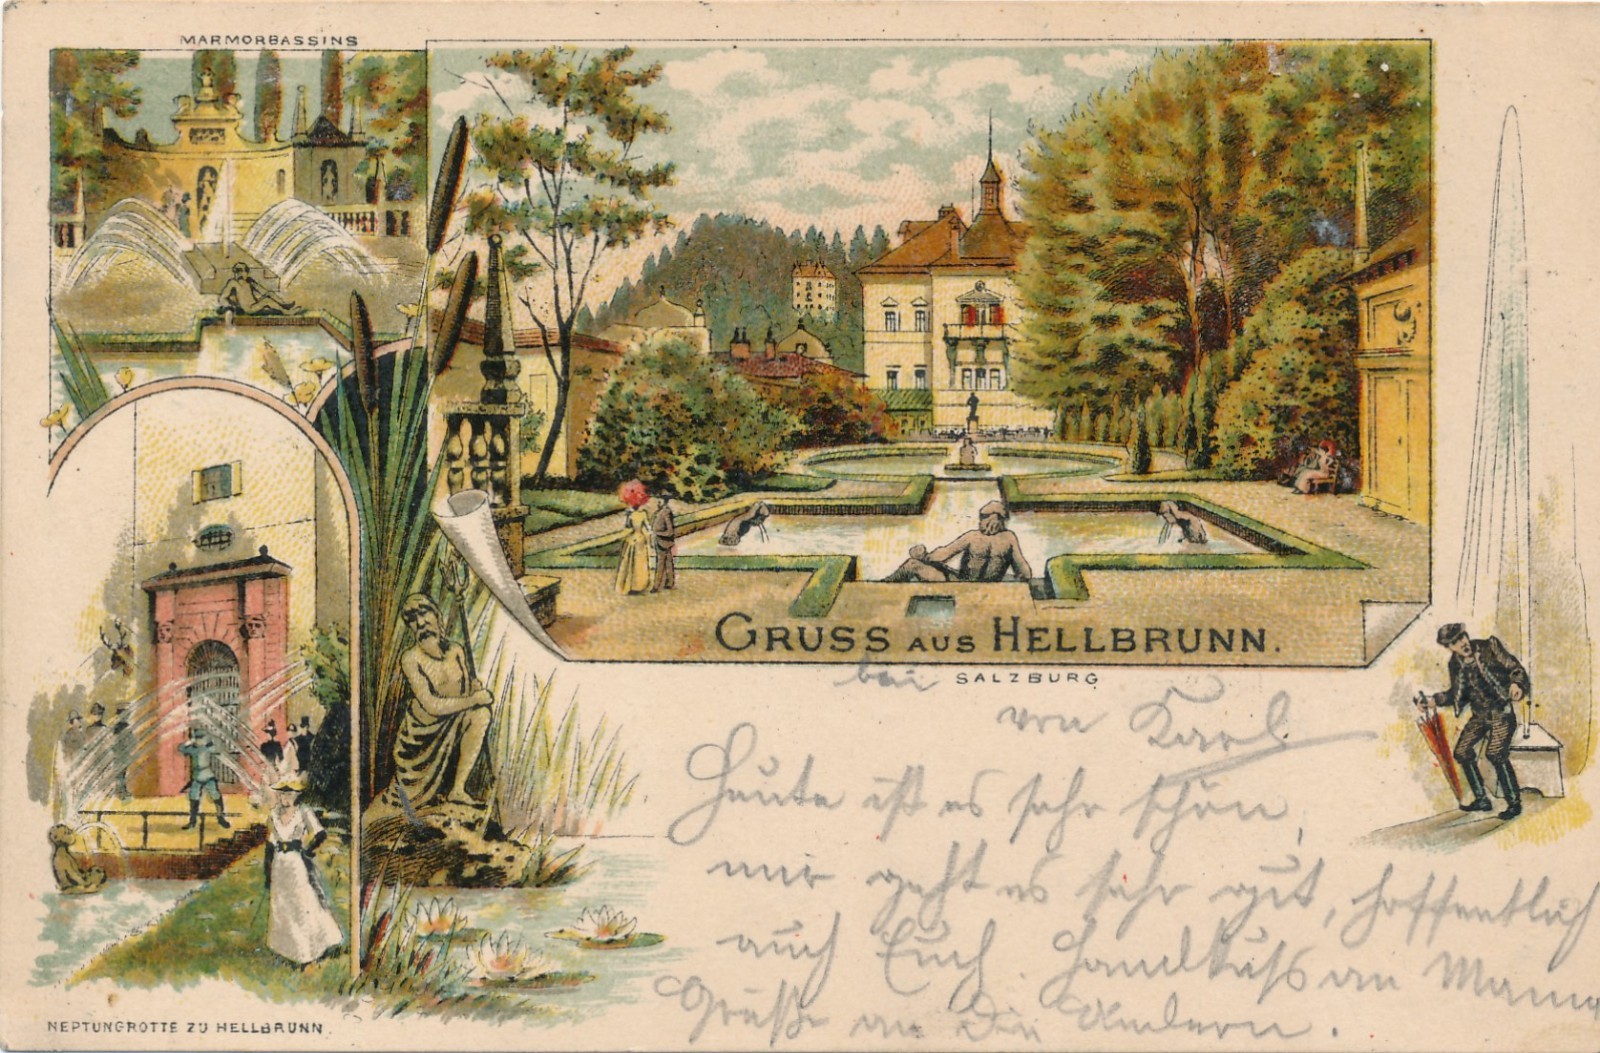 MARMORBASSINS
GRUSS AUS HELLBRUNN.
bei SALZBURG
von Karl
Heute ist es sehr schön,
mir geht es sehr gut, hoffentlich
auch Euch. Handkuß an Mama
Grüße an die Andern.
NEPTUNGROTTE ZU HELLBRUNN.